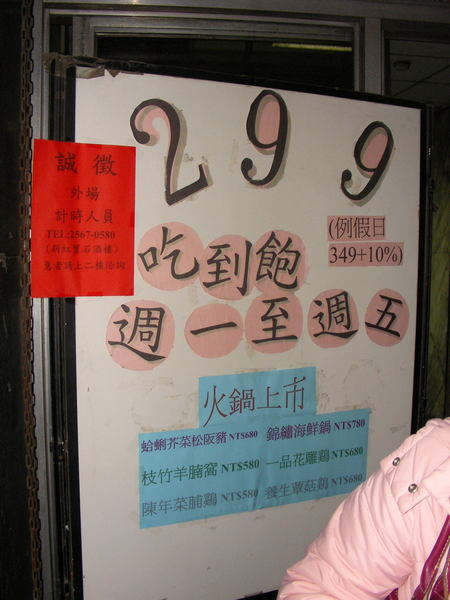 299
(例假日
349+10%)
吃到飽
週一至週五
誠徵
外場
計時人員
TEL:2567-0580
(新紅星石酒樓)
意者請上二樓洽詢
火鍋上市
蛤蜊芥菜松阪豬 NT$680 錦繡海鮮鍋 NT$780
枝竹羊腩窩 NT$580 一品花雕鷄 NT$680
陳年菜脯鷄 NT$580 養生蕈菇鷄 NT$680